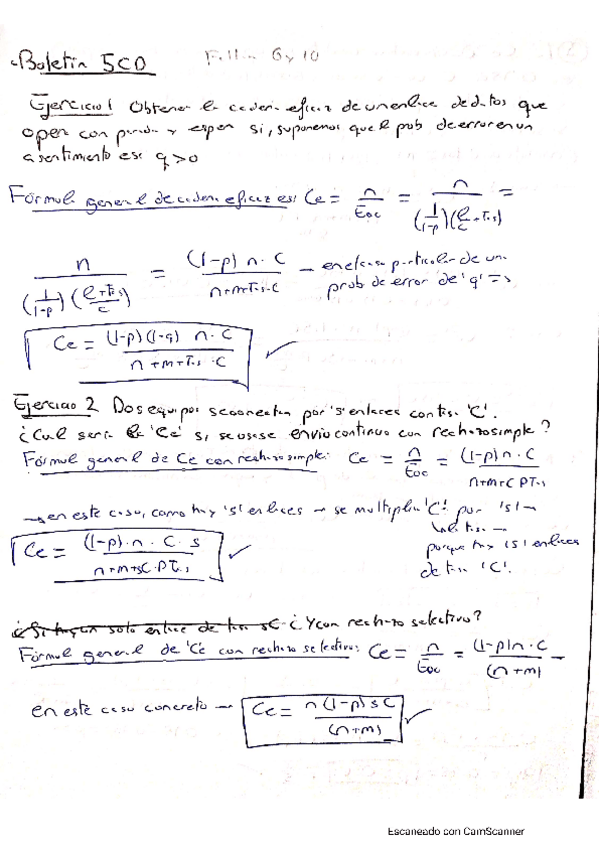 Boletín 5CD Faltan 6 y 10
Ejercicio 1 Obtener la cadencia eficaz de un enlace de datos que
opera con parada y espera si, suponemos que la prob de error en un
asentimiento es: q>0
Fórmula general de cadencia eficaz es: Ce = n / Eoc = n / (1/(1-p))(l/c + Tis) =
n / (1/(1-p))(l/c + Tis) = (1-p) n · C / n+m+Tis·C — en el caso particular de un
prob de error de 'q' =>
Ce = (1-p)(1-q) n · C / n+m+Tis · C
Ejercicio 2 Dos equipos se conectan por 's' enlaces con tisa 'C'.
¿Cuál sería la 'Ce' si se usase envío continuo con rechazo simple?
Fórmula general de Ce con rechazo simple: Ce = n / Eoc = (1-p)n · C / n+m+C PTis
→ en este caso, como hay 's' enlaces → se multiplica 'C' por 's' →
porque hay 's' enlaces
de tisa 'C'.
Ce = (1-p) · n · C · s / n+m+sC·PTis
¿Y con rechazo selectivo?
Fórmula general de 'Ce' con rechazo selectivo: Ce = n / Eoc = (1-p)n · C / (n+m) —
en este caso concreto → Ce = n(1-p)sC / (n+m)
Escaneado con CamScanner